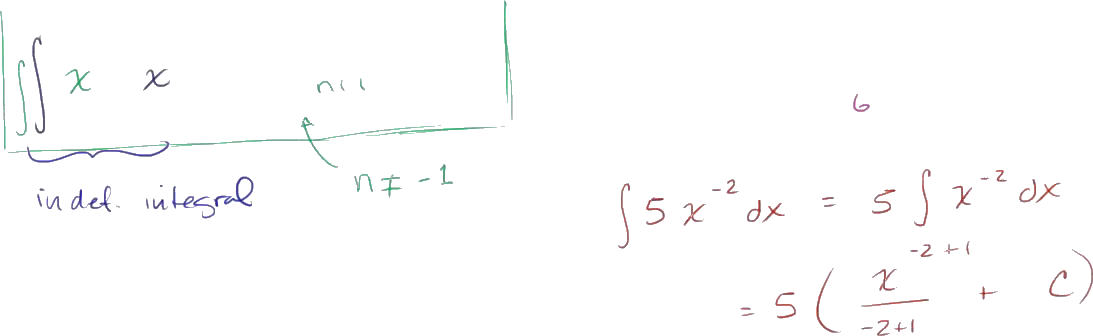 ∫∫ x x
n+1
n ≠ -1
indef. integral
6
∫ 5 x^{-2} dx = 5 ∫ x^{-2} dx
= 5 ( x^{-2+1} / -2+1 + C )